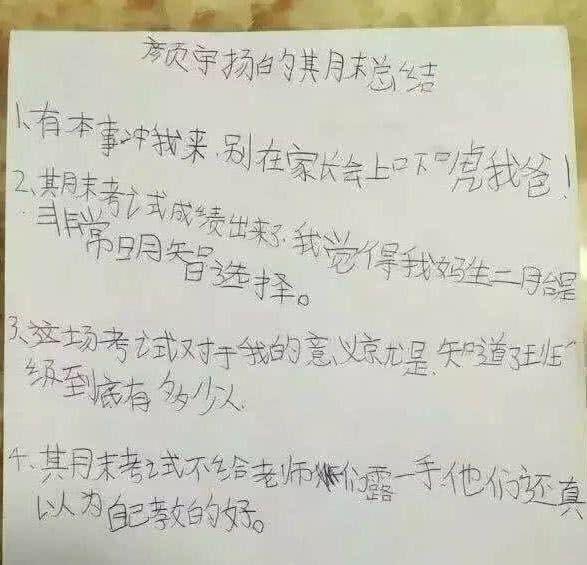 颜宇扬的其月末总结
1、有本事冲我来,别在家长会上吓唬我爸!
2、其月末考试成绩出来了.我觉得我妈生二月台是
非常明智选择。
3、这场考试对于我的意义京尤是,知道了班
级到底有多少人.
4、其月末考试不给老师们露一手他们还真
以为自己教的好。